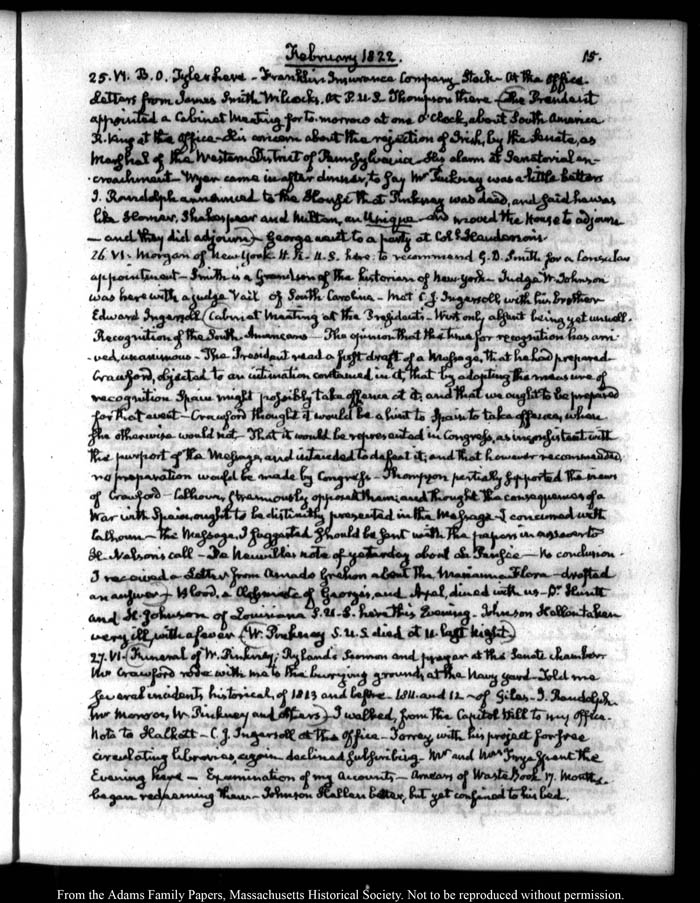 February 1822.
15.
25. VI. B. O. Tyler here - Franklin Insurance Company Stock - At the office.
Letters from James Smith Wilcocks. At P.U.S. Thompson there (The President
appointed a Cabinet Meeting for to-morrow at one O'Clock, about South America
R. King at the office - His concern about the rejection of Irish, by the Senate, as
Marshal of the Western District of Pennsylvania His alarm at Senatorial en-
croachment - Wyer came in after dinner, to say Mr Pinkney was a little better
J. Randolph announced to the House that Pinkney was dead, and said he was
like Homer, Shakespear and Milton, an Unique and moved the House to adjourn
- and they did adjourn) - George went to a party at Col.
26. VI. Morgan of New York H.R.U.S. here to recommend G. D. Smith for a Consular
appointment - Smith is a Grandson of the historian of New-York. Judge W. Johnson
was here with a judge Vail of South Carolina - Met C. J. Ingersoll, with his brother
Edward Ingersoll (Cabinet Meeting at the President's - Wirt only absent being yet unwell.
Recognition of the South-Americans - The opinion that the time for recognition has arri-
ved, unanimous - The President read a first draft of a Message, that he had prepared
Crawford, objected to an intimation contained in it, that by adopting the measure of
recognition Spain might possibly take offence at it; and that we ought to be prepared
for that event - Crawford thought it would be a hint to Spain to take offence, where
she otherwise would not - That it would be represented in Congress, as inconsistent with
the purport of the Message, and intended to defeat it; and that however recommended,
no preparation would be made by Congress - Thompson partially supported the views
of Crawford - Calhoun, strenuously opposed them; and thought the consequences of a
War with Spain, ought to be distinctly presented in the Message - I concurred with
Calhoun - the Message, I suggested should be sent with the papers in answer to
H. Nelson's call - De Neuville's note of yesterday about - No conclusion.
I received a Letter from Amado Grehon about the Marianna Flora - drafted
an answer) - Blood, a Classmate of George's, and Axal, dined with us - Dr. Huntt
and H. Johnson of Louisiana S.U.S. here this Evening. Johnson Hellen taken
very ill, with a fever (W. Pinkney S.U.S. died at 12. last Night.)
27. VI. (Funeral of W. Pinkney; Ryland's Sermon and prayer at the Senate chamber
Mr Crawford rode with me to the burying ground, at the Navy yard - Told me
several incidents, historical, of 1813 and before 1811. and 12 - of Giles - J. Randolph.
Mr Monroe, W. Pinkney and others) - I walked, from the Capitol Hill to my Office.
Note to Halkett - C. J. Ingersoll at the office - Torrey with his project for free
circulating libraries, again declined subscribing. Mr and Mrs Frye spent the
Evening here - Examination of my Accounts - Arrears of Waste Book 17. Months.
began redeeming them - Johnson Hellen better, but yet confined to his bed.
From the Adams Family Papers, Massachusetts Historical Society. Not to be reproduced without permission.